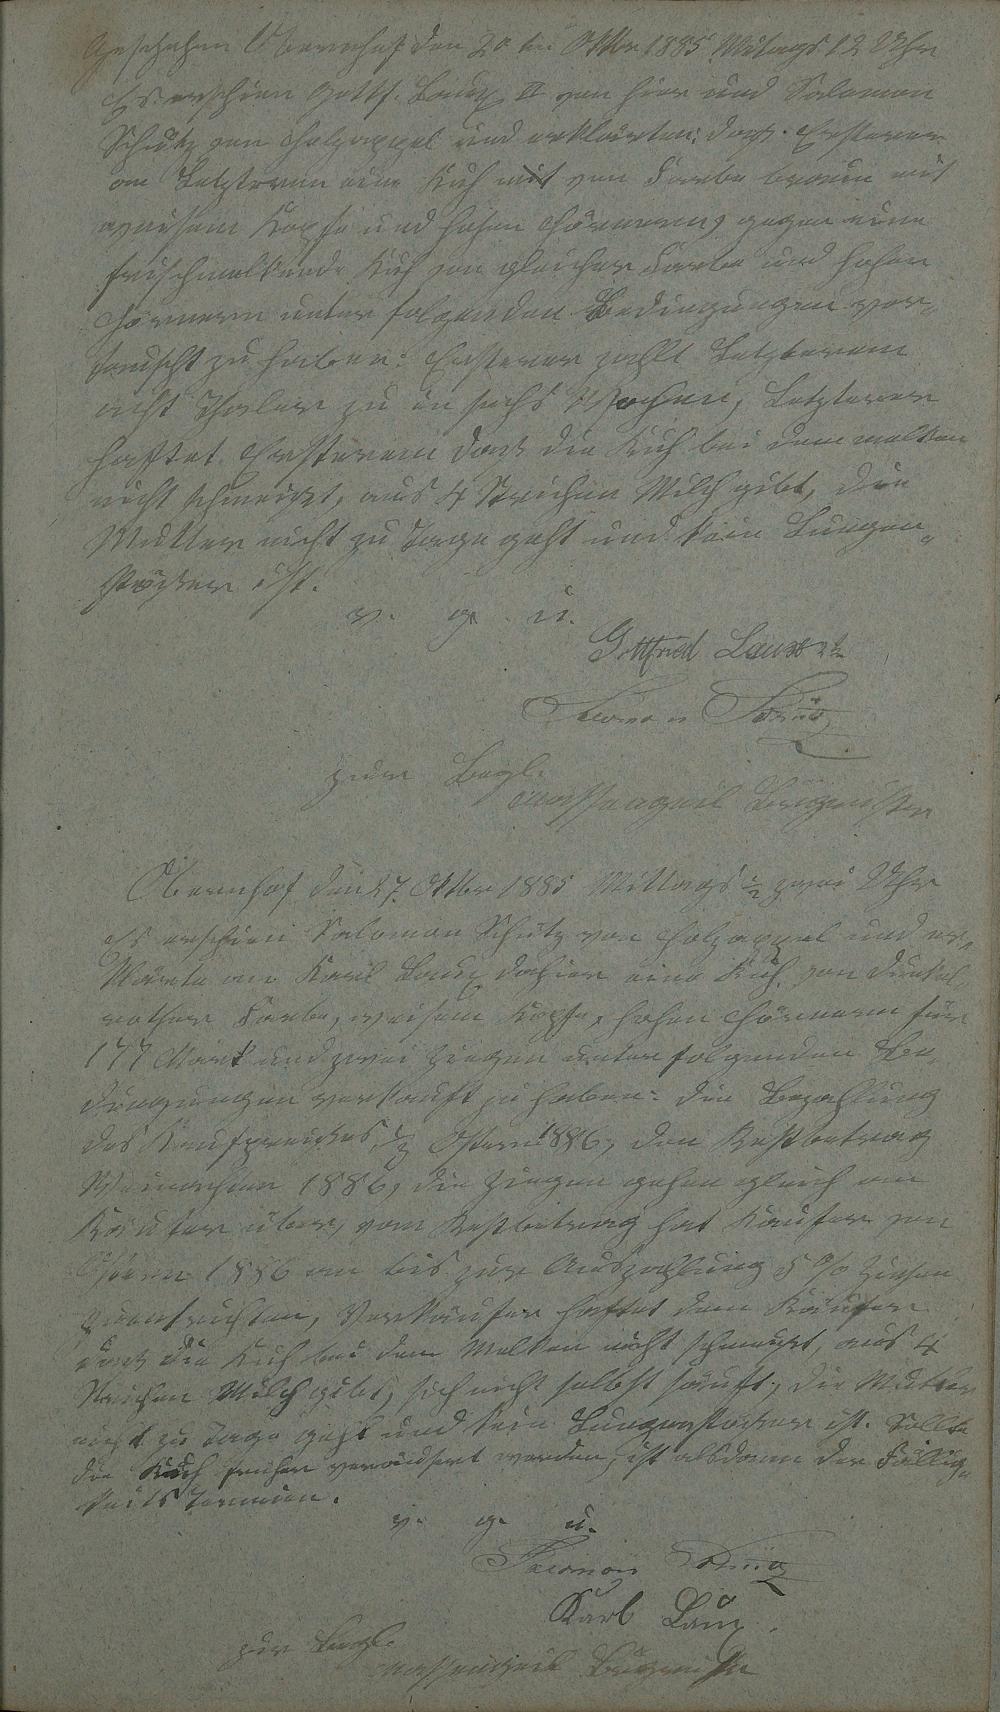 Geschehen Obernhof den 20ten Oktbr 1885 Mitags 12 Uhr
Es erschien Gottf. Laux II von hier und Salomon
Schütz von Holzappel und erklärten: daß Ersterer
an Letzteren eine Kuh mit von Farbe braun mit
weisem Kopfe und hohen Hörnern, gegen eine
frischmelkende Kuh von gleicher Farbe und hohen
Hörnern unter folgenden Bedingungen ver„
tauscht zu haben: Ersterer zahlt Letzterem
acht Thaler zu in sechs Wochen, Letzterer
haftet Ersterem daß die Kuh bei dem melken
nicht schmeißt, aus 4 Strichen Milch gibt, die
Mutter nicht zu Tage geht und kein Lungen„
stößer ist.
v. g. u.
Gottfried Laux 2te
Salomon Schütz
zur Begl.
Massengeil Bürgmstr
Obernhof den 27. Oktbr 1885 Mittags 1/2 zwei Uhr
Es erschien Salomon Schütz von Holzappel und er„
klärte an Karl Laux dahier eine Kuh von dunkel„
rother Farbe, weisem Kopfe, hohen Hörnern für
177 Mark und zwei Ziegen unter folgenden Be
dingungen verkauft zu haben: die Bezahlung
des Kaufpreises 1/2 Ostern 1886, den Restbetrag
Weinachten 1886, die Ziegen gehen gleich am
Käufer über, vom Restbetrag hat Käufer von
Ostern 1886 an bis zur Auszahlung 5 % Zinsen
zu entrichten, Verkäufer haftet dem Käufer
daß die Kuh bei dem Melken nicht schmeißt, aus 4
Strichen Milch gibt, sich nicht selbst säuft, die Mutter
nicht zu Tage geht und kein Lungenstößer ist. Sollte
die Kuh früher veräußert werden, ist alsdann der Fällig„
keits Termin.
v. g. u.
Salomon Schütz
Karl Laux.
zur Begl.
Massengeil Bürgmstr